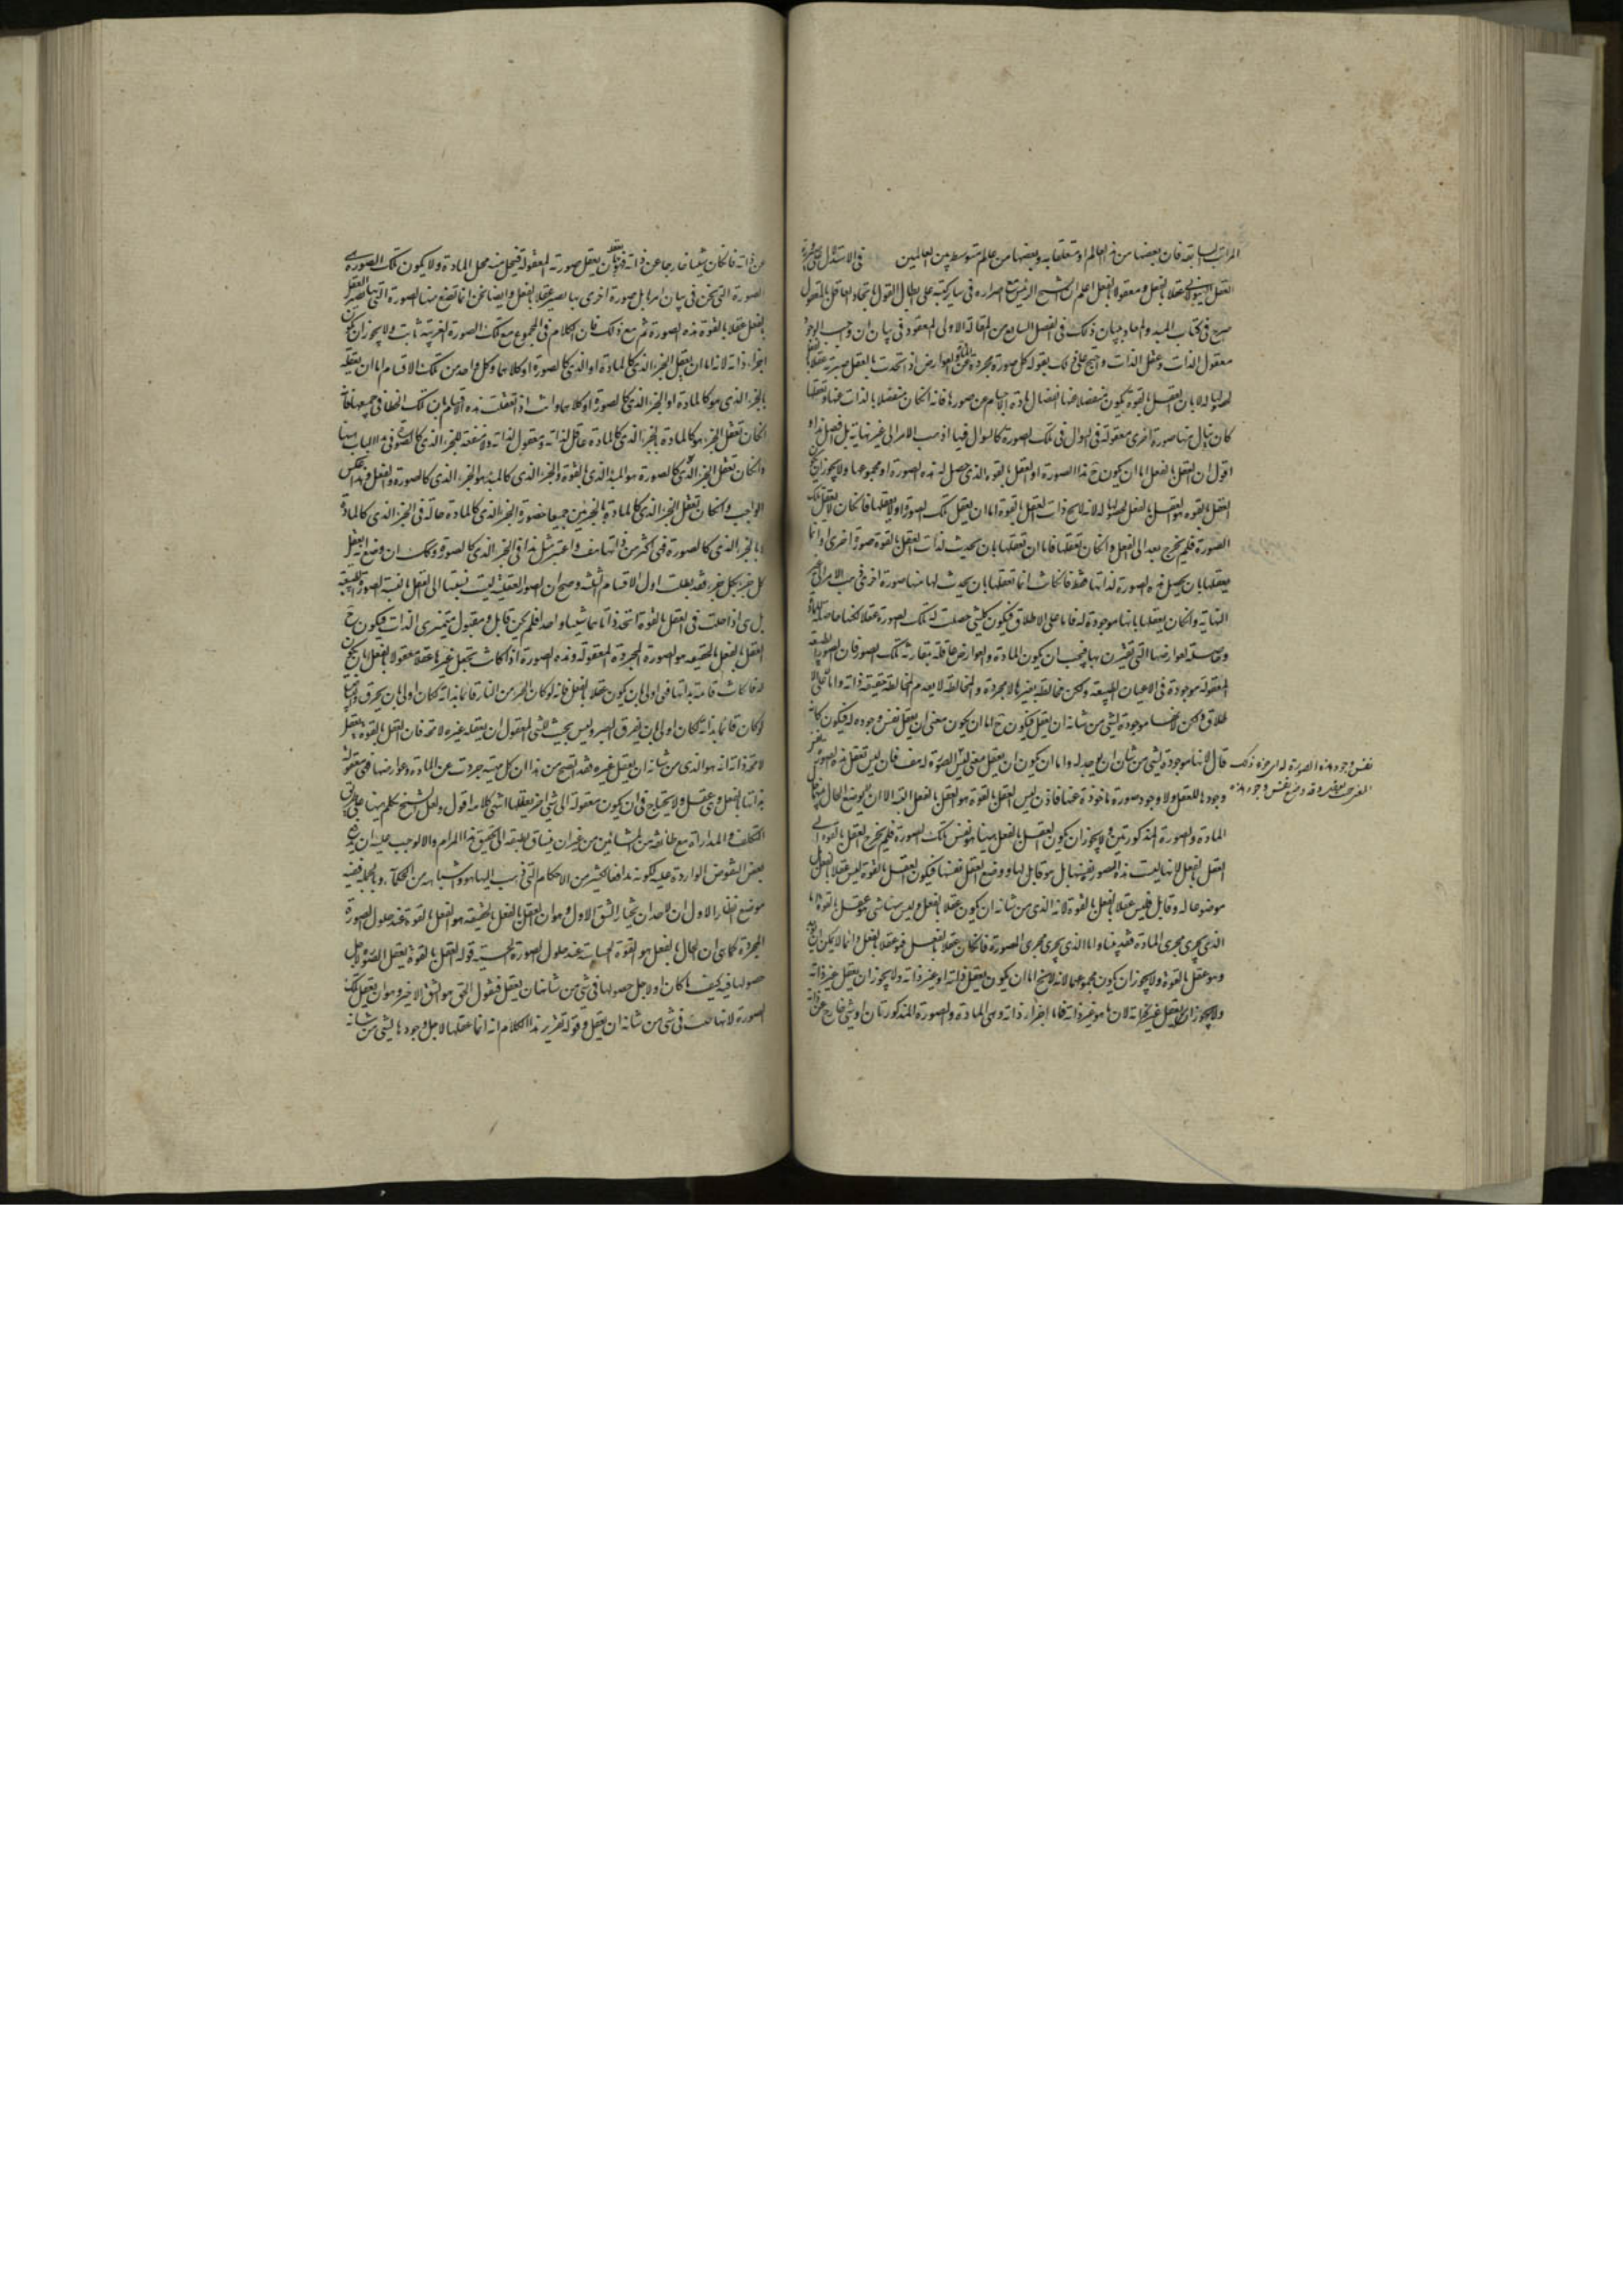 المراتب السابقه فان بعضها من هذ العالم او متعلقا به وبعضها من عالم متوسط بين العالمين في الاستدلال على
العقل الهيولى عقلا بالفعل ومعقولا بالفعل اعلم ان الشيخ الرئيس مع اصراره في ساير كتبه على ابطال القول باتحاد العاقل بالمعقول
صرح في كتاب المبدء والمعاد ببيان ذلك في الفصل السابع من المقالة الاولى المعقود في بيان ان واجب الوجود
معقول الذات وعقل الذات واحتج على ذلك بقوله كل صورة مجردة عن المادة والعوارض اذ اتحدت بالعقل صيرته عقلا بالفعل
لحصولها له لا بان العقل بالقوة يكون منفصلا عنها انفصال مادة الاجسام عن صورها فانه انكان منفصلا بالذات عنها وتعقلها
كان ينال منها صورة اخرى معقولة في السؤال في تلك الصورة كالسوال فيها اذهب الامر الى غير نهاية بل افصل هذا و
اقول ان العقل بالفعل اما ان يكون ح هذا الصورة او العقل بالقوه الذى حصل له هذه الصورة او مجموعهما ولا يجوز ان يكون
العقل بالقوه هو العقل بالفعل لحصولها له لانه لا يخ ذات العقل بالقوة اما ان يعقل تلك الصورة او لا يعقلها فانكان لا يعقل تلك
الصورة فلم يخرج بعد الى الفعل وانكان تعقلها فاما ان تعقلها بان يحدث لذات العقل بالقوة صورة اخرى او انما
يعقلها بان يحصل هذه الصورة لذاتها فقط فانكانت انما تعقلها بان يحدث لها منها صورة اخرى ذهب الامر الى غير
النهاية وانكان يعقلها بانها موجودة له فاما على الاطلاق فيكون كل شئ حصلت له تلك الصورة عقلا لكنها حاصلة للمادة
وحاصلة لعوارضها التى تقترن بها فيجب ان يكون المادة والعوارض عاقلة بمقارنة تلك الصور فان الصورة
المعقولة موجودة في الاعيان الطبيعه ولكن مخالطة بغيرها لا مجردة والمخالطة لا يعدم المخالطة حقيقة ذاته واما لا على الا
طلاق ولكن لانها موجودة لشئ من شانه ان يعقل فيكون ح اما ان يكون معنى ان يعقل نفس وجوده له فيكون كانه
قال لانها موجودة لشئ من شان ان يوجد له واما ان يكون ان يعقل معنى ليس الصورة له هف فان ليس تعقل هذه الصورة نفس
وجودها للعقل ولا وجود صورة ماخوذة عنها فاذن ليس العقل بالقوة هو العقل بالفعل البتة الا ان لا يوضع الحال بينهما حال
المادة والصورة المذكورتين ولا يجوز ان يكون العقل بالفعل ههنا هو نفس تلك الصورة فلم يخرج العقل بالقوة الى
العقل بالفعل لانها ليست هذه الصورة نفسها بل هو قابل لها ووضع العقل نفسها فيكون العقل بالقوة ليس عقلا بالفعل بل
موضوعا له وقابل فليس عقلا بالفعل بالقوة لانه الذى من شانه ان يكون عقلا بالفعل وليس ههنا شئ هو عقل بالقوة اما
الذى يجرى مجرى المادة فقد بينا واما الذى يجرى مجرى الصورة فانكان عقلا بالفعل فهو عقلا بالفعل دائما لا يمكن ان يوجد
وهو عقل بالقوة ولا يجوز ان يكون مجموعهما لانه لا يخ اما ان يكون يعقل ذاته او غير ذاته ولا يجوز ان يعقل غير ذاته
ولا يجوز ان يعقل غير ذاته لان ما هو غير ذاته فاما اجزاء ذاته وهى المادة والصورة المذكورتان او شئ خارج عن ذاته
نفس وجود هذه الصورة له
عن ذاته فانكان شيئا خارجا عن ذاته فتعقله بان يعقل صورته المعقولة فيحل منه محل المادة ولا يكون تلك الصورة هى
الصورة التى نحن في بيان امرها بل صورة اخرى بها يصير عقلا بالفعل وايضا نحن انما نضع منها الصورة التى بها يصير العقل
بالفعل عقلا بالقوة هذه الصورة ثم مع ذلك فان الكلام في المجموع مع تلك الصورة الغريبة ثابت ولا يجوز ان يكون
اجزاء ذاته لانه اما ان يعقل الجزء الذى كالمادة او الذى كالصورة او كلاهما وكل واحد من تلك الاقسام اما ان يعقله
بالجزء الذى هو كالمادة او الجزء الذى كالصورة او كلاهما وانت اذا تعقلت هذه الاقسام بان تلك الخطا في جميعها فانه
انكان تعقل الجزء هو كالمادة بالجزء الذى كالمادة عاقل لذاته ومعقول لذاته ولا منفعة للجزء الذى كالصورة في هذا الباب ههنا
وانكان تعقل الجزء الذى كالصورة هو المبدء الذى بالقوة والجزء الذى كالمبدء هو الجزء الذى كالصورة بالفعل وهذا عكس
الواجب وانكان تعقل الجزء الذى كالمادة بالجزئين جميعا فصورة الجزء الذى كالمادة حالة في الجزء الذى كالمادة
وبالجزء الذى كالصورة فهى اكثر من ذاتها هف واعتبر مثل هذا في الجزء الذى كالصورة وكذلك ان وضع انه يعقل
كل جزء بكل جزء فقد بطلت اول الاقسام الثلثه وصح ان الصور العقلية ليست نسبتها الى العقل بالقوة نسبة الصورة الطبيعيه
بل هى اذا حلت في العقل بالقوة اتحد ذاتاهما شيئا واحدا فلم يكن قابل ومقبول متميزى الذات فيكون ح
العقل بالفعل بالحقيقه هو الصورة المجردة المعقولة وهذه الصورة اذا كانت تجعل غيرها عقلا معقولا بالفعل بان يكون
له فاذا كانت قائمة بذاتها فهى اولى بان يكون عقلا بالفعل فانه لو كان الجزء من النار قائما بذاته لكان اولى بان يحرق والبياض
لو كان قائما بذاته لكان اولى بان يفرق البصر وليس يجب للشئ المعقول ان يعقله غيره لا محة فان العقل بالقوة يعقل
لا محة ذاته انه هو الذى من شانه ان يعقل غيره فقد اتضح من هذا ان كل مهية جردت عن المادة وعوارضها فهى معقولة
بذاتها بالفعل وهى عقل ولا يحتاج في ان يكون معقولة الى شئ اخر يعقلها انتهى كلامه اقول ولعل الشيخ تكلم ههنا على طريق
التكلف والمداراة مع طائفة من المشائين من غير ان ينساق طبعه الى تحقيق هذا المرام والا لوجب عليه ان يدفع
بعض النقوض الواردة عليه لكونه مدافعا لكثير من الاحكام التى ذهب اليها هو واشباهه من الحكماء وبالجمله ففيه
موضع انظار الاول ان لاحد ان يختار الشق الاول وهو ان العقل بالفعل بالحقيقه هو العقل بالقوة عند حلول الصورة
المجردة كما ان الحال بالفعل هو القوة الحساسة عند حلول الصورة الحسية قوله العقل بالقوة يعقل الصورة لاجل
حصولها فيه كيف ما كان او لاجل حصولها في شئ من شانها ان يعقل فنقول الحق هو الشق الاخير وهو ان يعقل تلك
الصورة لانها حلت في شئ من شانه ان يعقل وقوله تقرير هذا الكلام انه انما عقلها لاجل وجودها لشئ من شانه